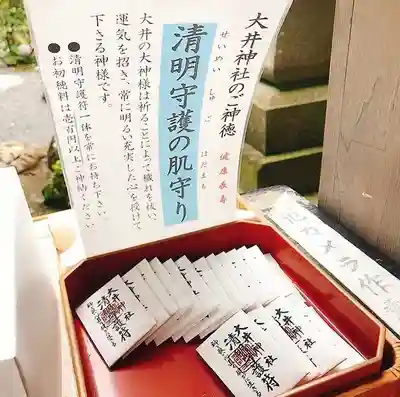 大井神社のご神徳
健康長寿
せいめい しゅ ご はだまも
清明守護の肌守り
大井の大神様は祈ることによって穢れを祓い、
運気を招き、常に明るい充実した心を授けて
下さる神様です。
●清明守護符一体を常にお持ち下さい
●お初穂料は壱百円以上ご神納ください
大井神社
清明守護符
大井神社
清明守護符
防犯カメラ作